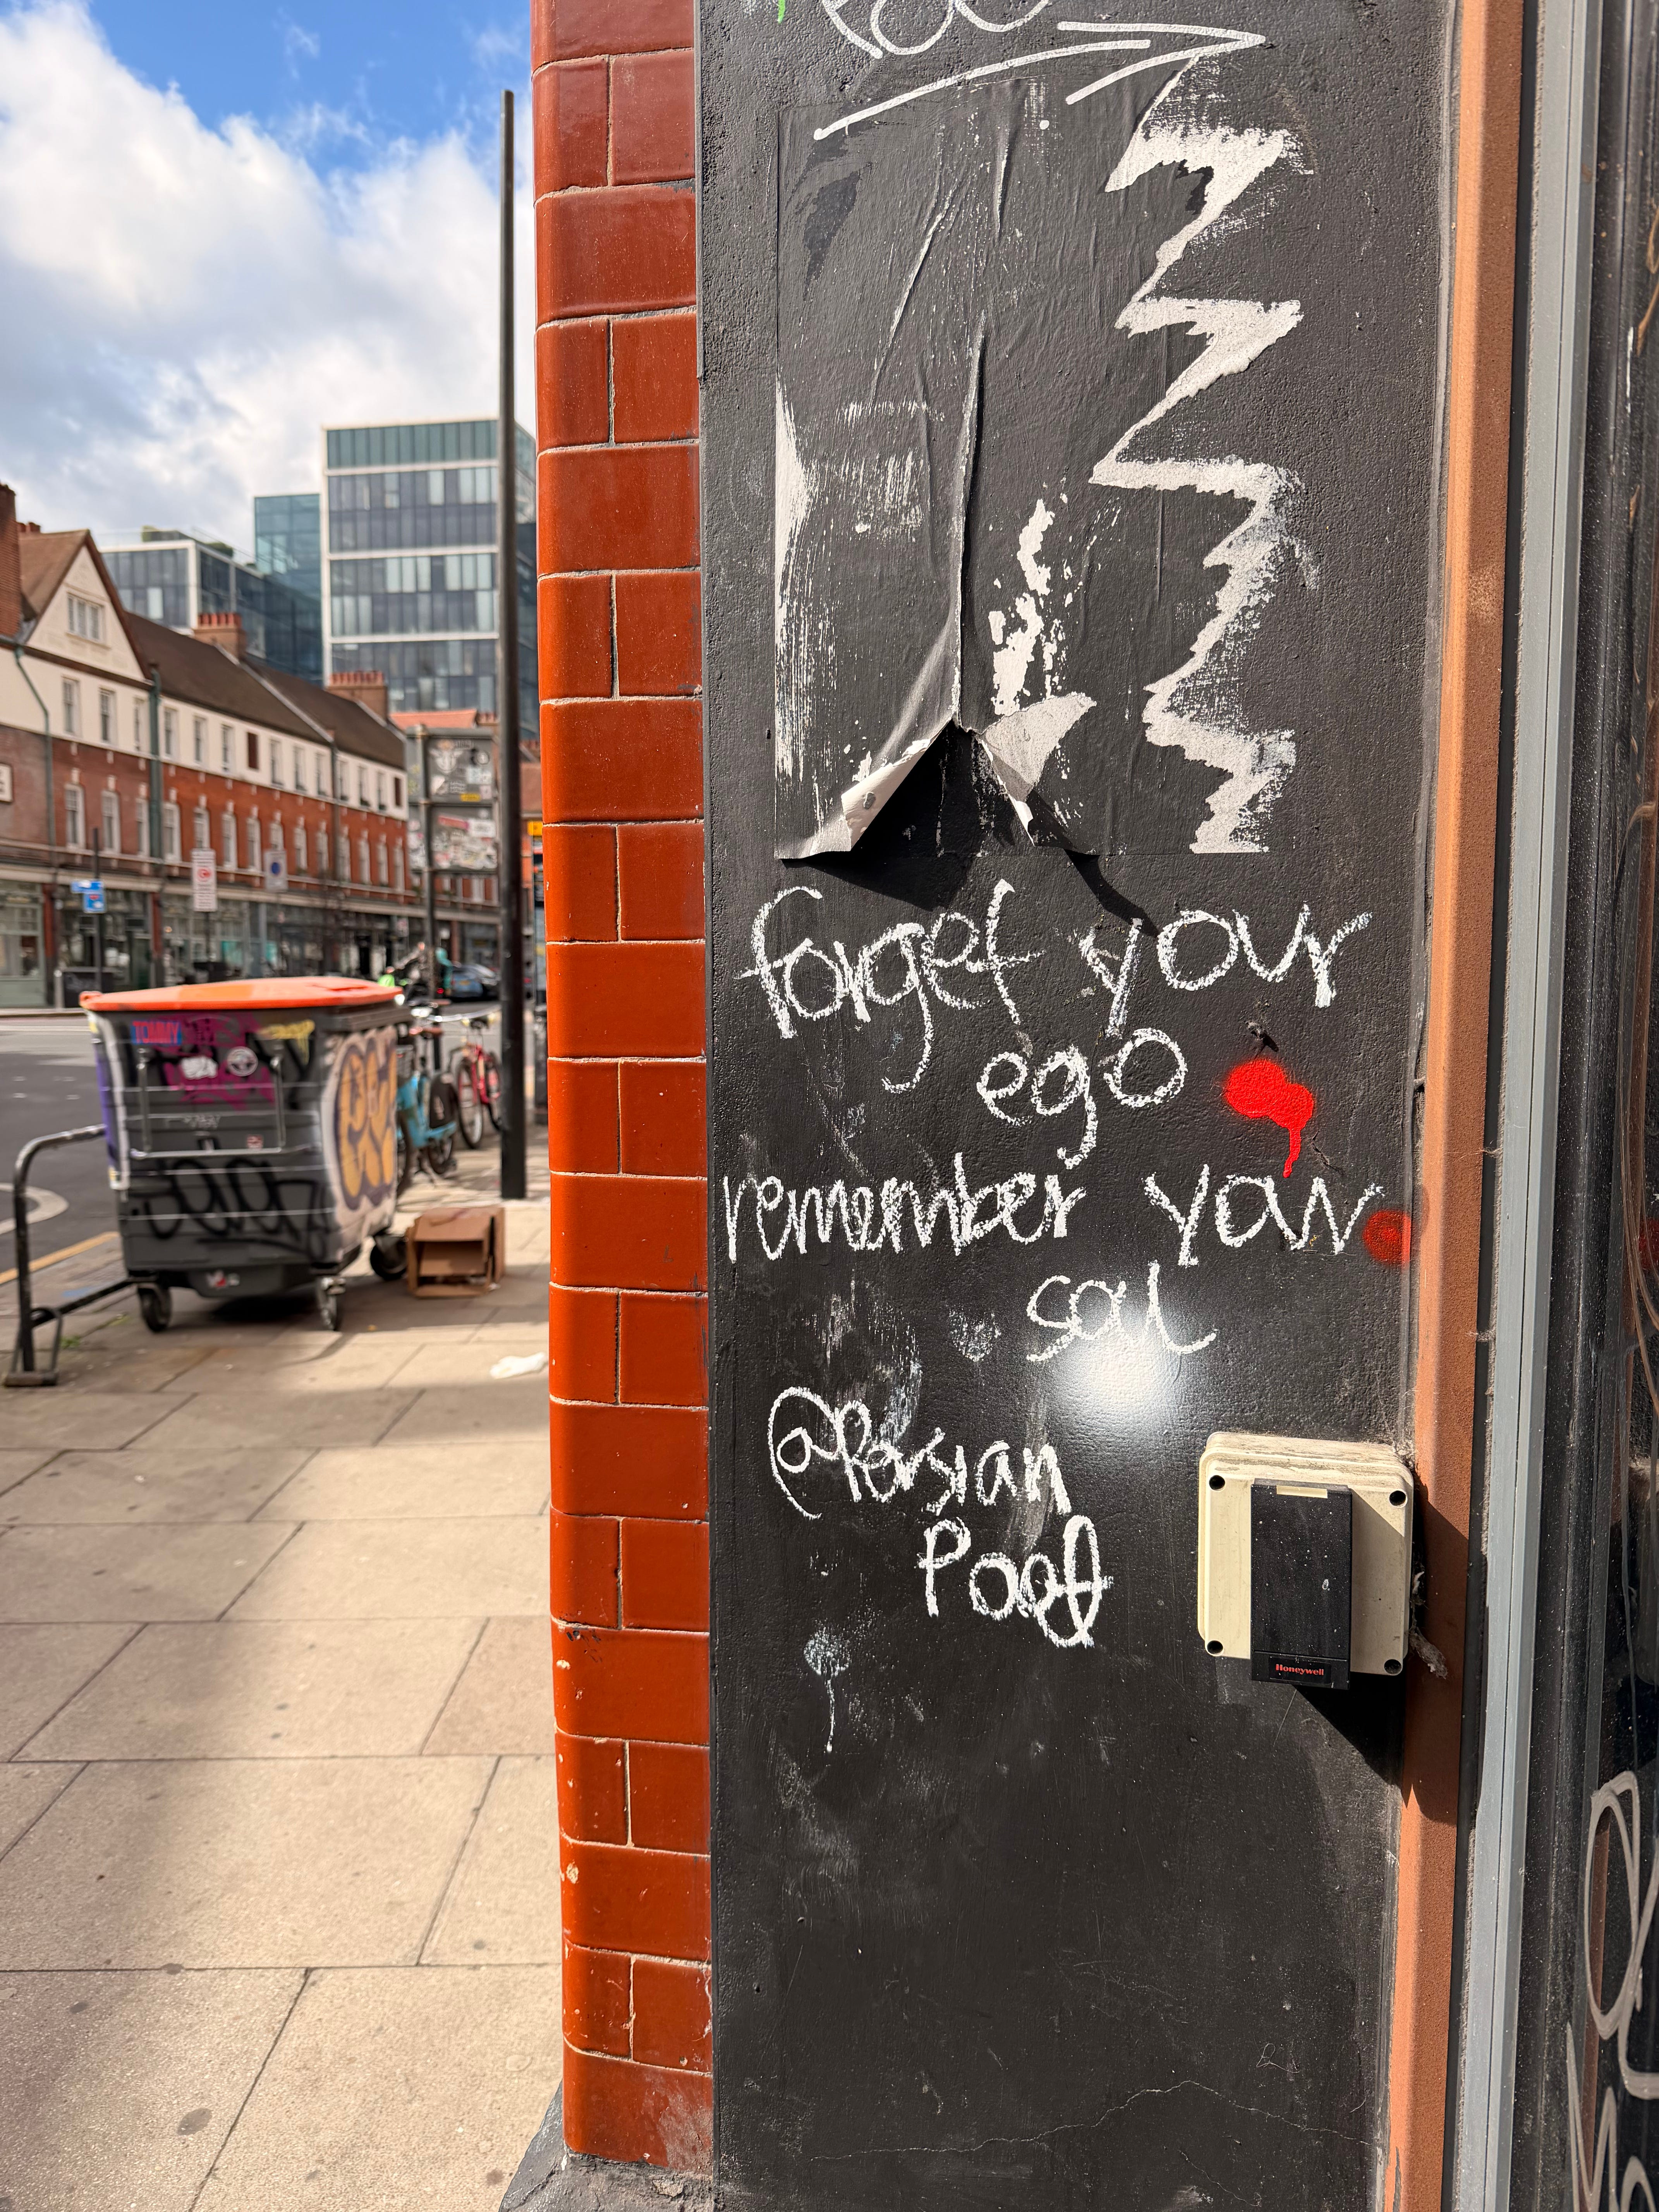 forget your
ego
remember your
soul
@Persian
Poet
Honeywell
TOMMY